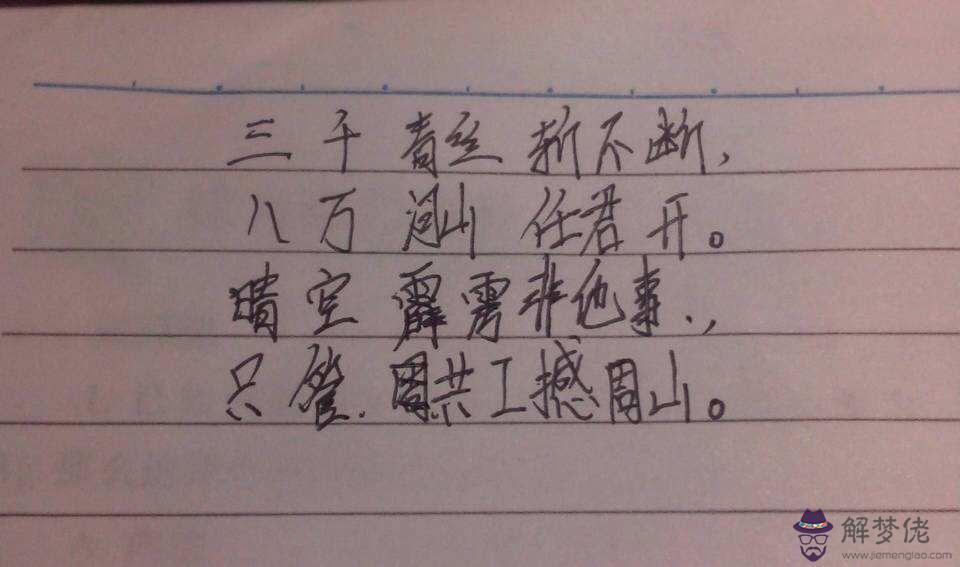 三千青丝斩不断，
八万闾山任君开。
晴空霹雳非他事，
只管 共工撼周山。
解梦佬
www.jiemenglao.com